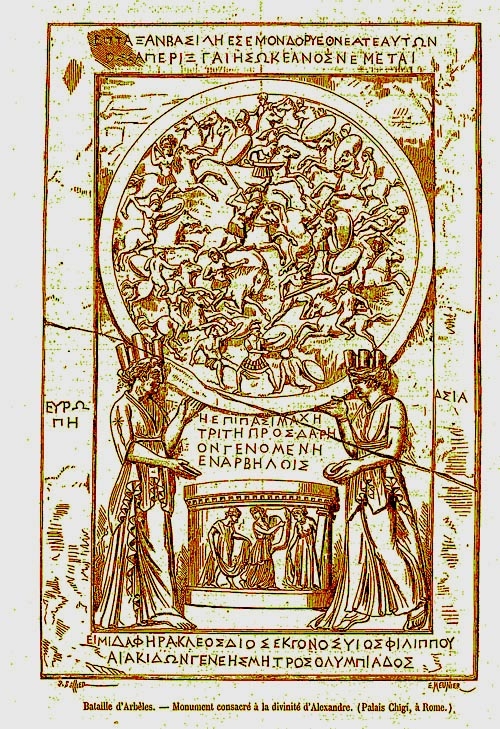 ΕΠΤΑΞΑΝΒΑΣΙΛΗΕΣΕΜΟΝΔΟΡΥΕΘΝΕΑΤΕΑΥΤΩΝ
ΟΣΣΑΠΕΡΙΞΓΑΙΗΣΩΚΕΑΝΟΣΝΕΜΕΤΑΙ
ΕΥΡΩ
ΠΗ
ΑΣΙΑ
ΗΕΠΙΠΑΣΙΜΑΧΗ
ΤΡΙΤΗΠΡΟΣΔΑΡΗ
ΟΝΓΕΝΟΜΕΝΗ
ΕΝΑΡΒΗΛΟΙΣ
ΕΙΜΙΔΑΦΗΡΑΚΛΕΟΣΔΙΟΣΕΚΓΟΝΟΣΥΙΟΣΦΙΛΙΠΠΟΥ
ΑΙΑΚΙΔΩΝΓΕΝΕΗΣΜΗΤΡΟΣΟΛΥΜΠΙΑΔΟΣ
E.MEUNIER
Bataille d'Arbèles. — Monument consacré à la divinité d'Alexandre. (Palais Chigi, à Rome.)